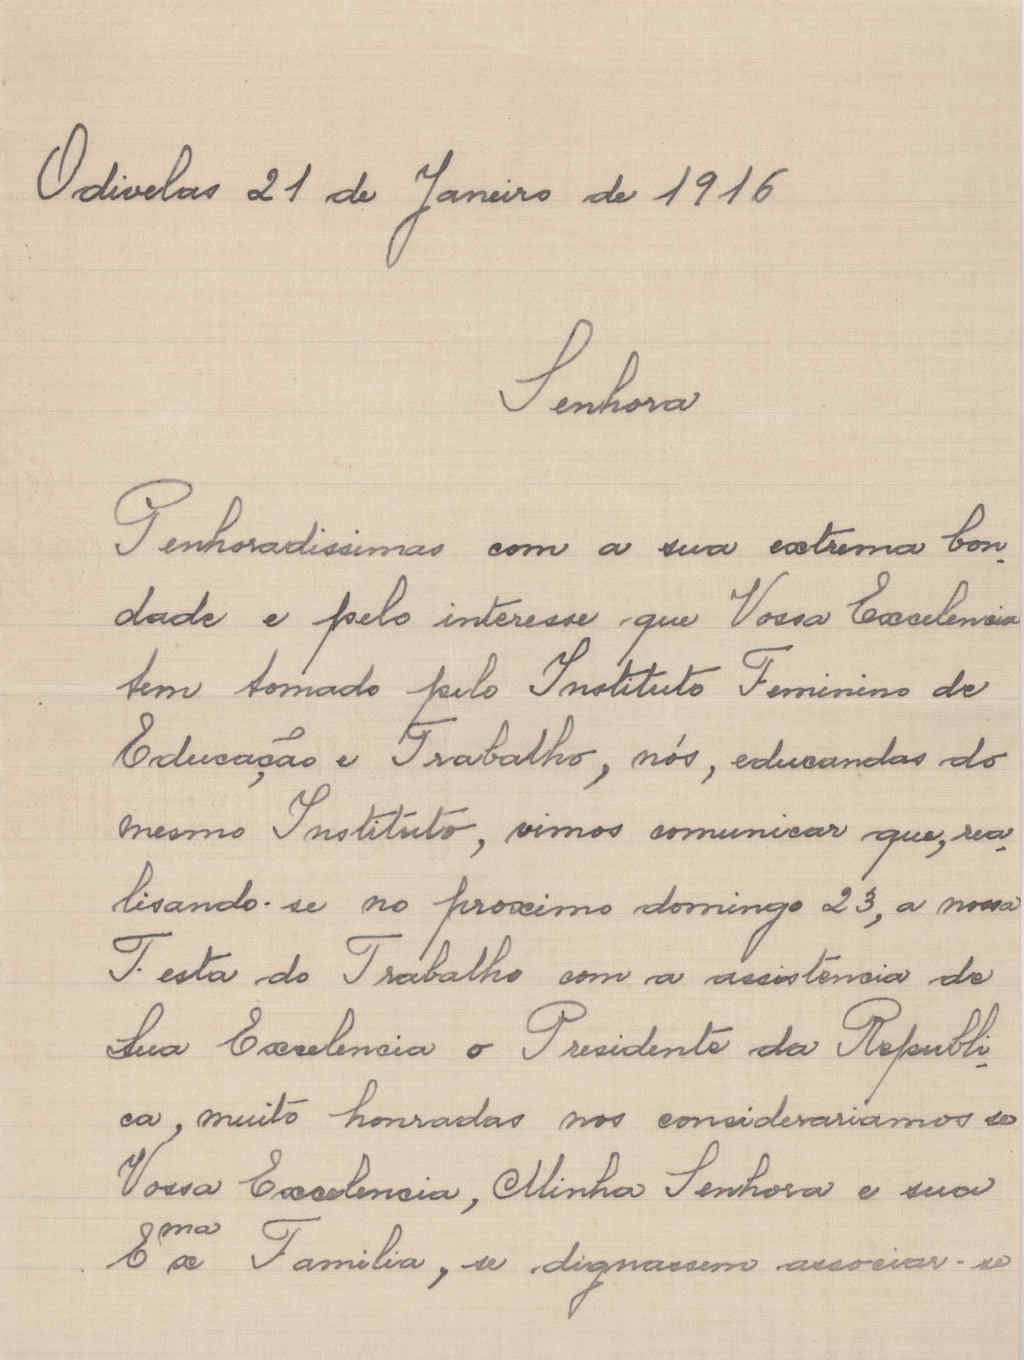 Odivelas 21 de Janeiro de 1916
Senhora
Penhoradissimas com a sua extrema bon-
dade e pelo interesse que Vossa Excelencia
tem tomado pelo Instituto Feminino de
Educação e Trabalho, nós, educandas do
mesmo Instituto, vimos comunicar que, rea-
lisando-se no proximo domingo 23, a nossa
Festa do Trabalho com a assistência de
Sua Excelencia o Presidente da Republi-
ca, muito honradas nos considerariamos se
Vossa Excelencia, Minha Senhora e sua
Exma Familia, se dignassem associar-se